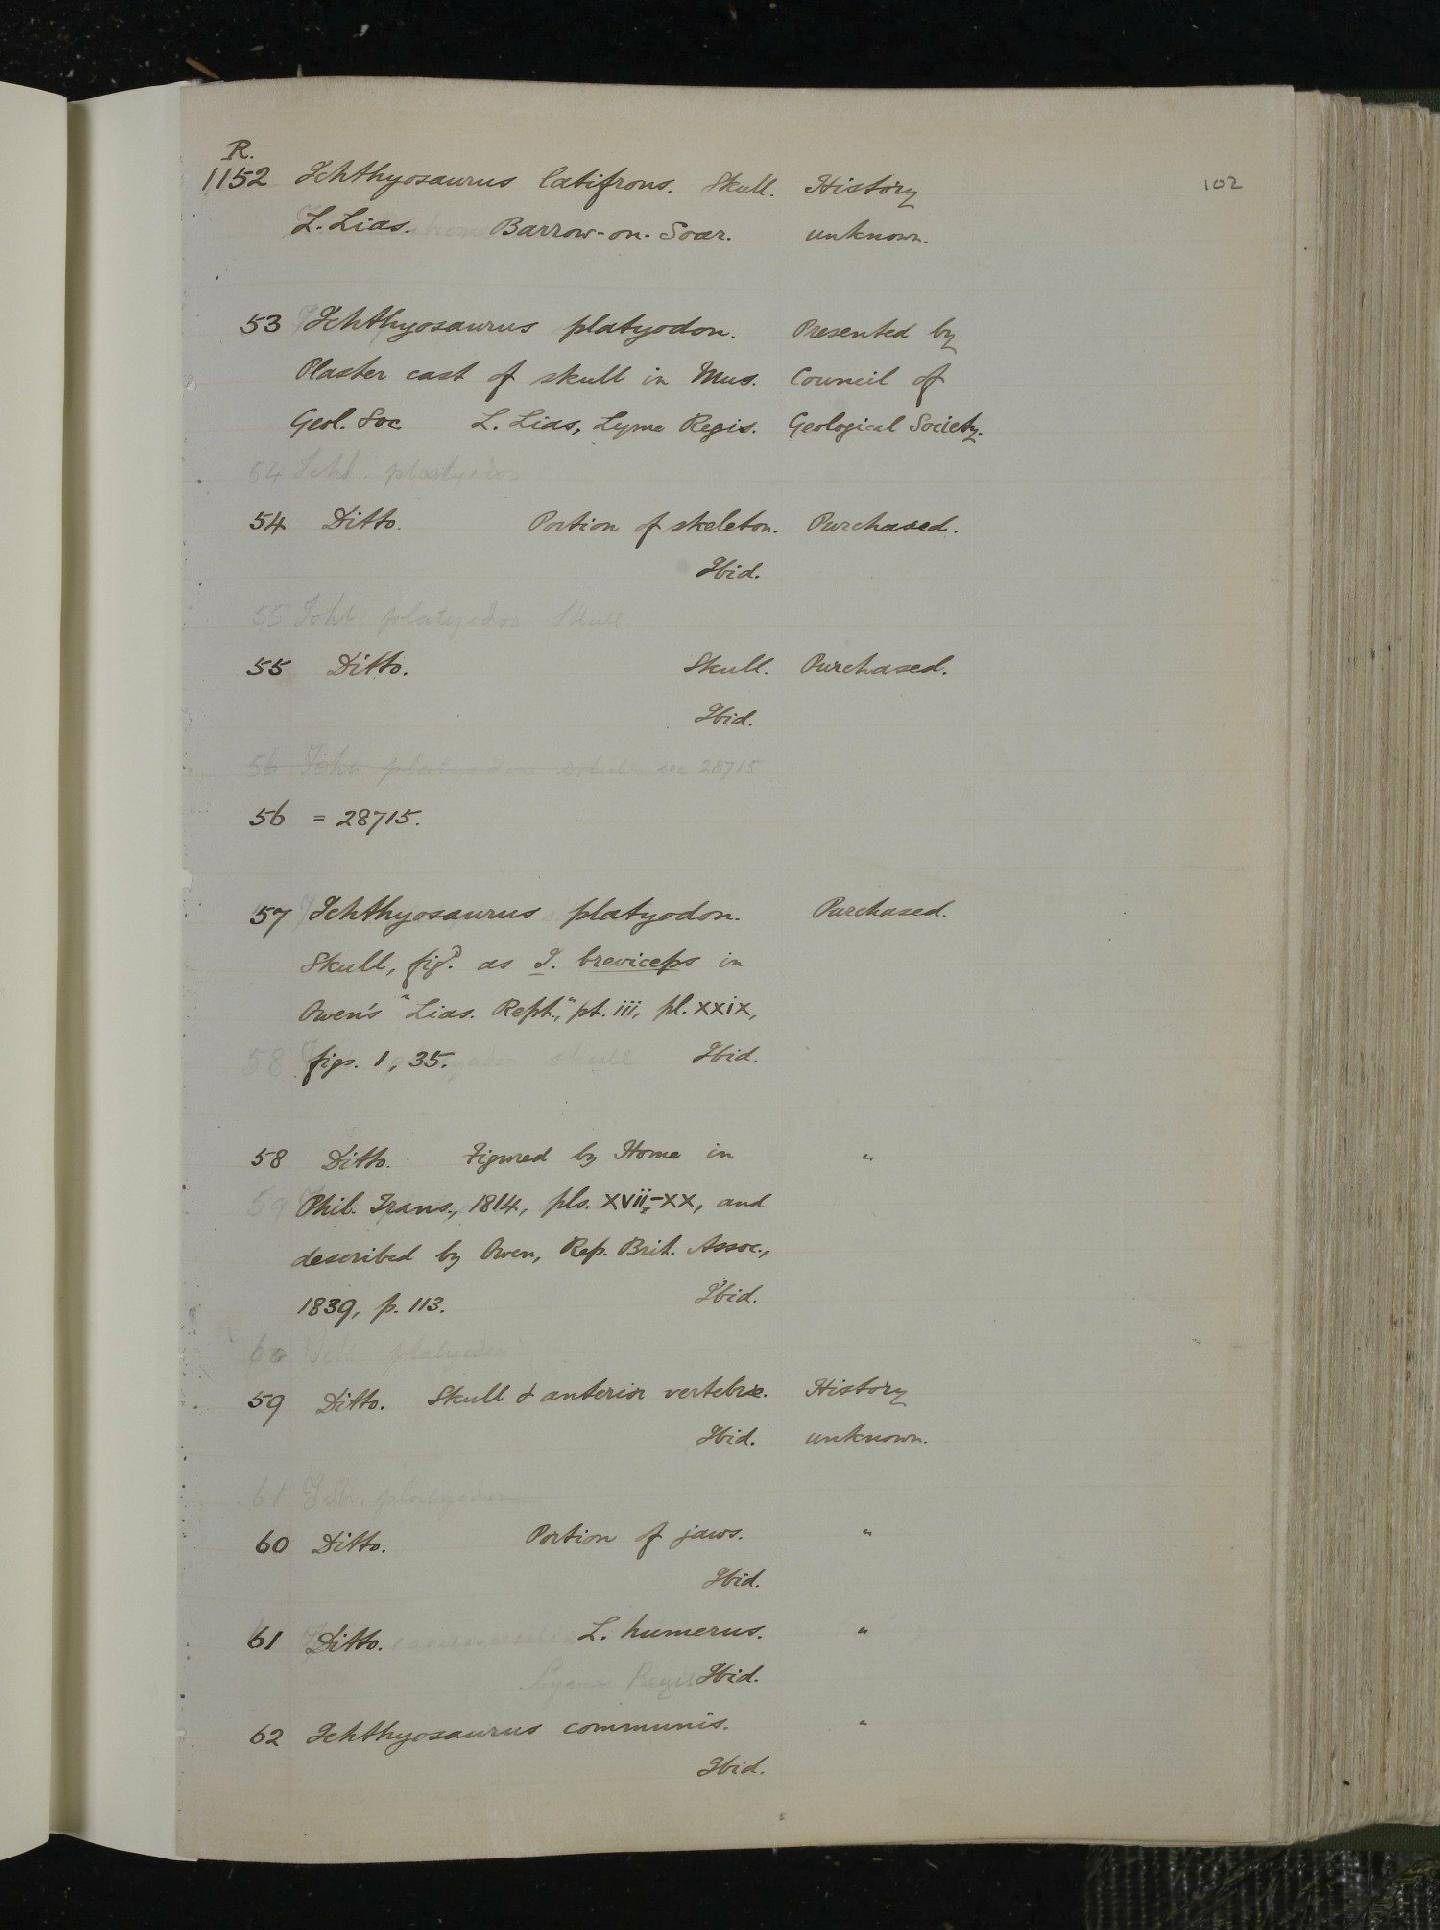 102
R.
1152 Ichthyosaurus latifrons. Skull. History
L. Lias. Barrow-on-Soar. unknown.
53 Ichthyosaurus platyodon. Presented by
Plaster cast of skull in Mus. Council of
Geol. Soc L. Lias, Lyme Regis. Geological Society.
64 Icht. platyodon
54 Ditto. Portion of skeleton. Purchased.
Ibid.
55 Icht. platyodon Skull
55 Ditto. Skull. Purchased.
Ibid.
56 Icht. platyodon skull see 28715
56 = 28715.
57 Ichthyosaurus platyodon. Purchased.
Skull, figd. as I. breviceps in
Owen's "Lias. Rept.," pt. iii, pl. xxix,
58 figs. 1, 35. skull Ibid.
58 Ditto. Figured by Home in "
59 Phil. Trans., 1814, pls. xvii-xx, and
described by Owen, Rep. Brit. Assoc.,
1839, p. 113. Ibid.
60 Icht. platyodon
59 Ditto. Skull & anterior vertebræ. History
Ibid. unknown.
61 Icht. platyodon
60 Ditto. Portion of jaws. "
Ibid.
61 Ditto. L. humerus. "
Lyme Regis Ibid.
62 Ichthyosaurus communis. "
Ibid.